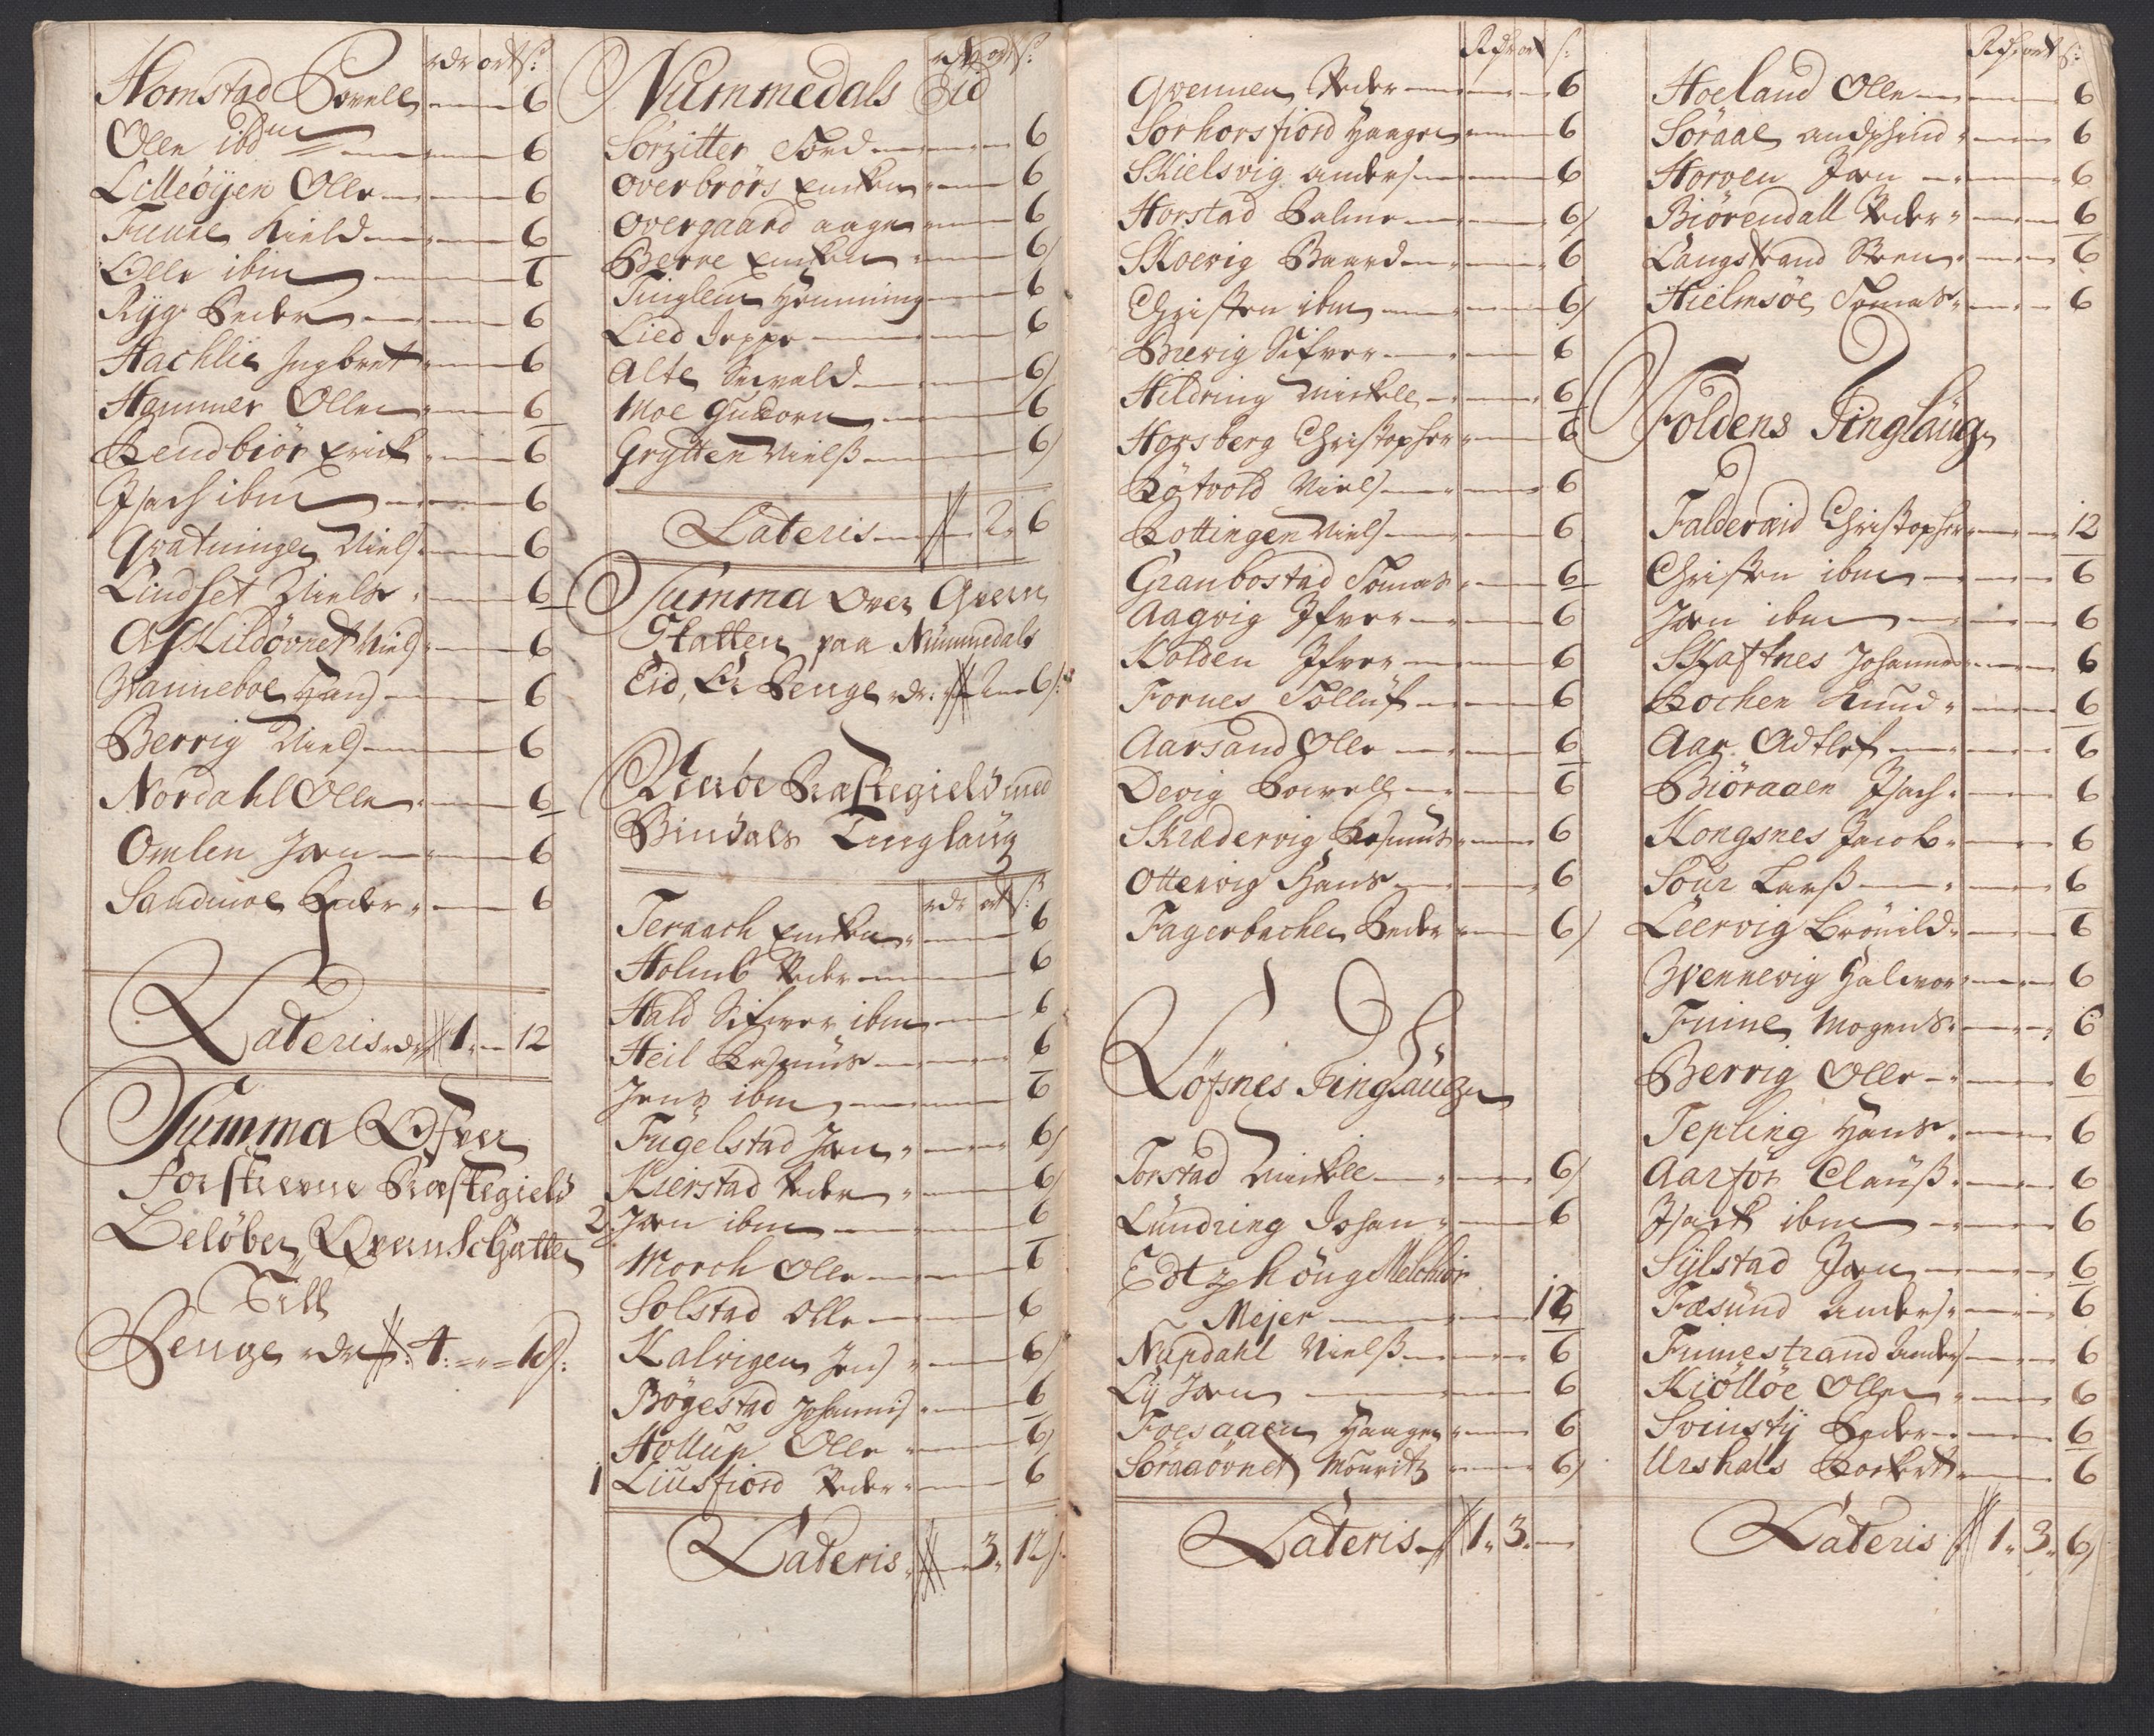 rdr ort ß:
Homstad Povell 6
Olle ibdm 6
Lilleöÿen Olle 6
Fuure Kield 6
Olle ibm 6
Rÿg Peder 6
Hachlie Ingbret 6
Hammer Olle 6
Rendbiör Erick 6
Isach ibm 6
Qvatninge Niels 6
Lindset Niels 6
Af Kildövnet Niels 6
Wanneboe Hans 6
Berrig Niels 6
Nordahl Olle 6
Omlen Jon 6
Sandmoe Peder 6
Lateris rdr 1 - 12
Summa Ofver
Præstegield
Belöber Qvern Schatten
Till
Penge rdr: 4: - -
rdr ort ß:
Nummedals Eid
Sörzitter Tord 6
Overbrörs Encken 6
Overgaard Aage 6
Berre Encken 6
Tinglem Henning 6
Lied Jeppe 6
Alte Sievald 6
Moe Gudorn 6
Grÿtten Nielß 6
Lateris 2 6
Summa Over Qvern
Skatten paa Nummedals
Eid, Er Penge rdr: 2 - 6 ß:
Nerøe Præstegield med
Bindals Tinglaug
rdr ort ß:
Teraach Encken 6
Holmb Peder 6
Hald Sifver ibm 6
Heil Rasmus 6
Jens ibm 6
Fugelstad Jon 6
Kierstad Peder 6
2 Jon ibm 6
Morch Olle 6
Solstad Olle 6
Kalvigen Jens 6
Bögestad Johannis 6
Hollup Olle 6
1 Liusfiord Peder 6
Lateris 3 12 ß
Rdr ort ß:
Qvennen Peder 6
Sorhorsfiord Haagen 6
Skielsvig Anders 6
Horstad Palme 6
Skoevig Baard 6
Christen ibm 6
Brevig Sifver 6
Hildring Mickell 6
Horsberg Christopher 6
Rötvold Niels 6
Rottingen Niels 6
Granbostad Tomas 6
Aagvig Ifver 6
Kolden Ifver 6
Fornes Tolluf 6
Aarsand Olle 6
Devig Povell 6
Skrædervig Rasmus 6
Ottervig Hans 6
Fagerbache Peder 6
Löfsnes Tinglaug
Torstad Mickell 6
Lundring Johan 6
Melchior
Mejer 12
Nupdahl Nielß 6
Lÿ Jon 6
Foesaaen Haagen 6
Söraaövnet Mouritz 6
Lateris 1 3 -
Rdr ort ß:
Hoeland Olle 6
Söraae Andphind 6
Horven Jon 6
Biörendall Peder 6
Langstrand Steen 6
Hielmsöe Tomas 6
Foldens Tinglaug
Falderæid Christopher 12
Christen ibm 6
Jon ibm 6
Skaftnes Johannes 6
Rochen Knud 6
Aar Adtlef 6
Biöraaen Isach 6
Kongsnes Jacob 6
Sour Larß 6
Leervig Brönild 6
Wennevig Halvor 6
Fuine Mogens 6
Berrig Olle 6
Tepling Hans 6
Aarfor Clauß 6
Isack ibm 6
Sÿlstad Jon 6
Fæsund Anders 6
Fuinestrand Anders 6
Kiölløe Olle 6
Svinstÿ Peder 6
Urshals Rockert 6
Lateris 1 3 6